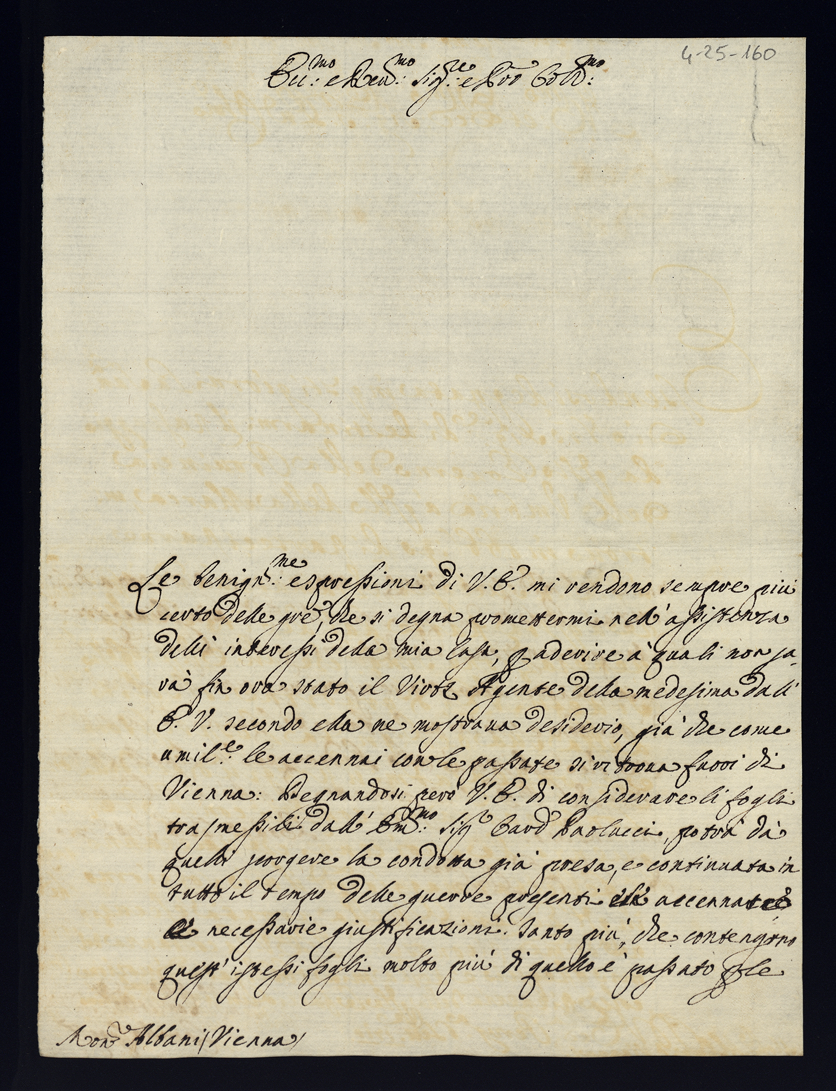 4-25-160
Ecc:mo e Rev:mo Sig:re e Pron Col:mo
Le benign:me espressioni di V. E. mi rendono sempre più
certo delle gre, che si degna promettermi nell' assistenza
delli interessi della mia Casa, p aderire à quali non sa-
rà fin ora stato il Agente della medesima dall'
E. V. secondo ella ne mostraua desiderio, già che come
umil:e le accennai con le passate si ritroua fuori di
Vienna: Degnandosi però V. E. di considerare li fogli
trasmessili dall' Em:mo Sig Card Paolucci, potrà da
quelli scorgere la condotta già presa, e continuata in
tutto il tempo delle guerre presenti accennate
necessarie giustificazioni. Tanto più, che contengono
quest' istessi fogli molto più di quello è passato p le
Mon Albani (Vienna)